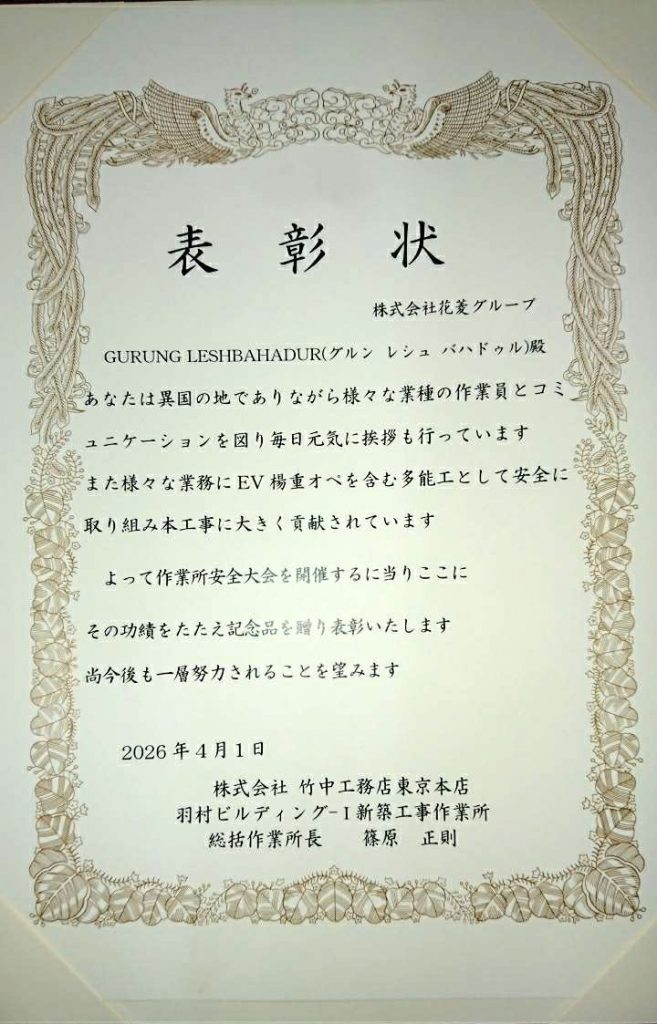 表彰状
株式会社花菱グループ
GURUNG LESHBAHADUR(グルン レシュ バハドゥル)殿
あなたは異国の地でありながら様々な業種の作業員とコミ
ュニケーションを図り毎日元気に挨拶も行っています
また様々な業務にEV楊重オペを含む多能工として安全に
取り組み本工事に大きく貢献されています
よって作業所安全大会を開催するに当りここに
その功績をたたえ記念品を贈り表彰いたします
尚今後も一層努力されることを望みます
2026年4月1日
株式会社 竹中工務店東京本店
羽村ビルディング-I新築工事作業所
総括作業所長 篠原 正則